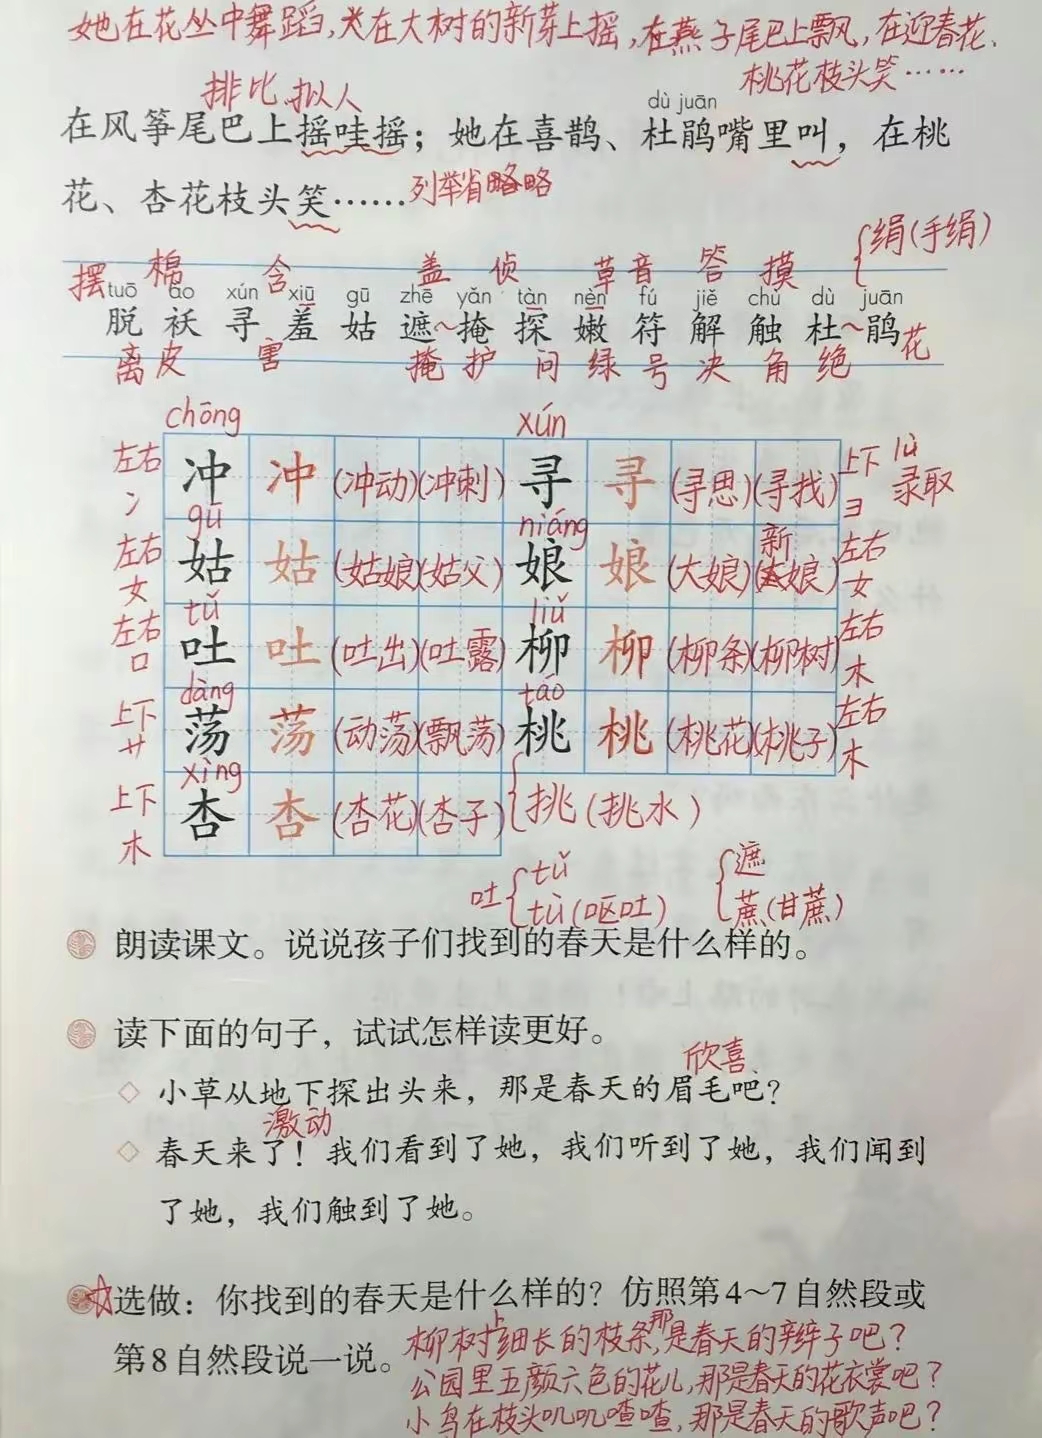 她在花丛中舞蹈,在大树的新芽上摇,在燕子尾巴上飘,在迎春花、
桃花枝头笑……
排比、拟人
dù juān
在风筝尾巴上摇哇摇；她在喜鹊、杜鹃嘴里叫，在桃
花、杏花枝头笑……列举省略略
绢(手绢)
摆 棉 含 盖 侦 草 音 答 摸
tuō ǎo xún xiū gū zhē yǎn tàn nèn fú jiě chù dù juān
脱 袄 寻 羞 姑 遮~掩 探 嫩 符 解 触 杜~鹃
离 皮 害 掩 护 问 绿 号 决 角 绝 花
chōng xún
左右 冲 冲 (冲动)(冲刺) 寻 寻 (寻思)(寻找) 上下 lù
冫 彐 录取
gū niáng 新
左右 姑 姑 (姑娘)(姑父) 娘 娘 (大娘)(娘) 左右
女 女
tǔ liǔ
左右 吐 吐 (吐出)(吐露) 柳 柳 (柳条)(柳树) 左右
口 木
dàng táo
上下 荡 荡 (动荡)(飘荡) 桃 桃 (桃花)(桃子) 左右
艹 木
xìng
上下 杏 杏 (杏花)(杏子) 挑(挑水)
木
吐 tǔ 遮
tù(呕吐) 蔗(甘蔗)
朗读课文。说说孩子们找到的春天是什么样的。
读下面的句子，试试怎样读更好。
欣喜
小草从地下探出头来，那是春天的眉毛吧？
激动
春天来了！我们看到了她，我们听到了她，我们闻到
了她，我们触到了她。
☆选做：你找到的春天是什么样的？仿照第4～7自然段或
第8自然段说一说。
柳树上细长的枝条,那是春天的辫子吧?
公园里五颜六色的花儿,那是春天的花衣裳吧?
小鸟在枝头叽叽喳喳,那是春天的歌声吧?